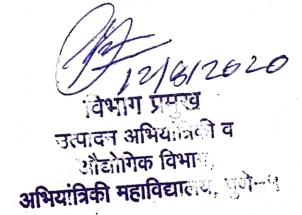 12/8/2020
विभाग प्रमुख
उत्पादन अभियांत्रिकी व
औद्योगिक विभाग,
अभियांत्रिकी महाविद्यालय, पुणे-५